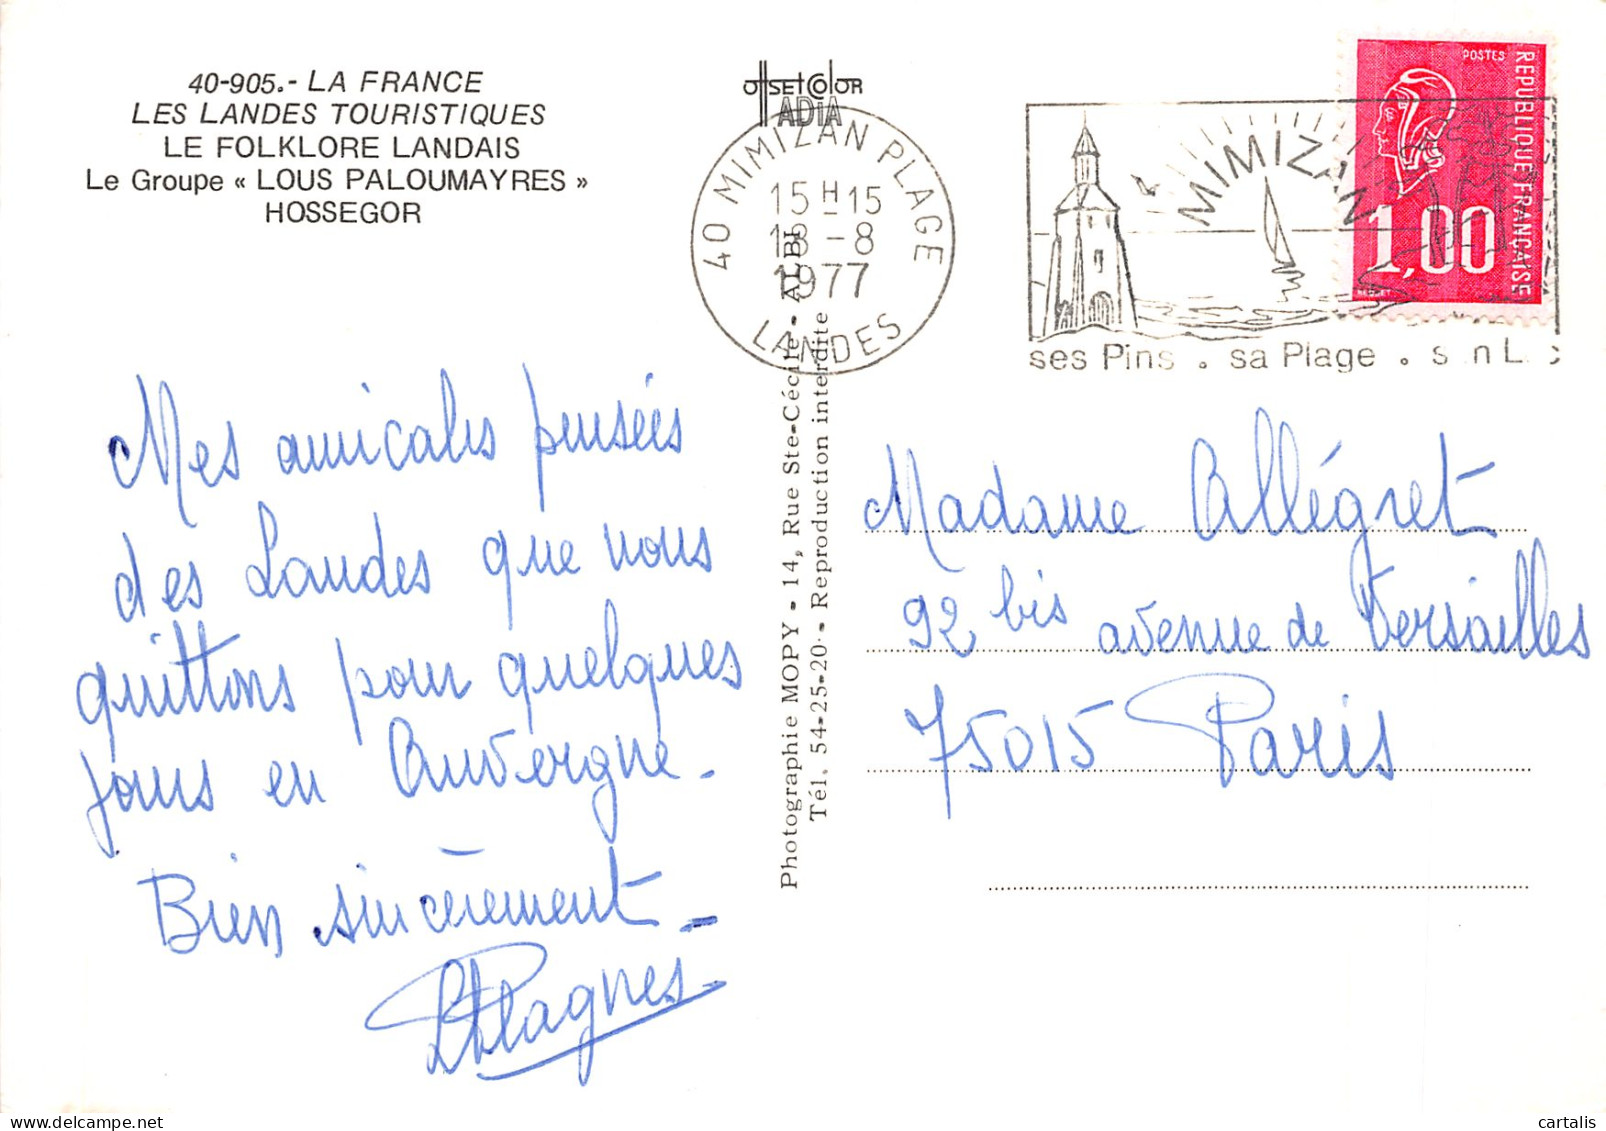 40-905.- LA FRANCE
LES LANDES TOURISTIQUES
LE FOLKLORE LANDAIS
Le Groupe « LOUS PALOUMAYRES »
HOSSEGOR
OffSEtColOR
ADiA
40 MIMIZAN PLAGE
15 H 15
-8
1977
LANDES
MIMIZAN
ses Pins . sa Plage .
POSTES
REPUBLIQUE FRANÇAISE
1,00
Mes amicales pensées
des Landes que nous
quittons pour quelques
jours en Auvergne.
Bien sincèrement -
Plagnes
Photographie MOPY - 14, Rue Ste-Cécile - ALBI
Tél. 54-25-20 - Reproduction interdite
Madame Allégret
92 bis avenue de Versailles
75015 Paris
cartalis